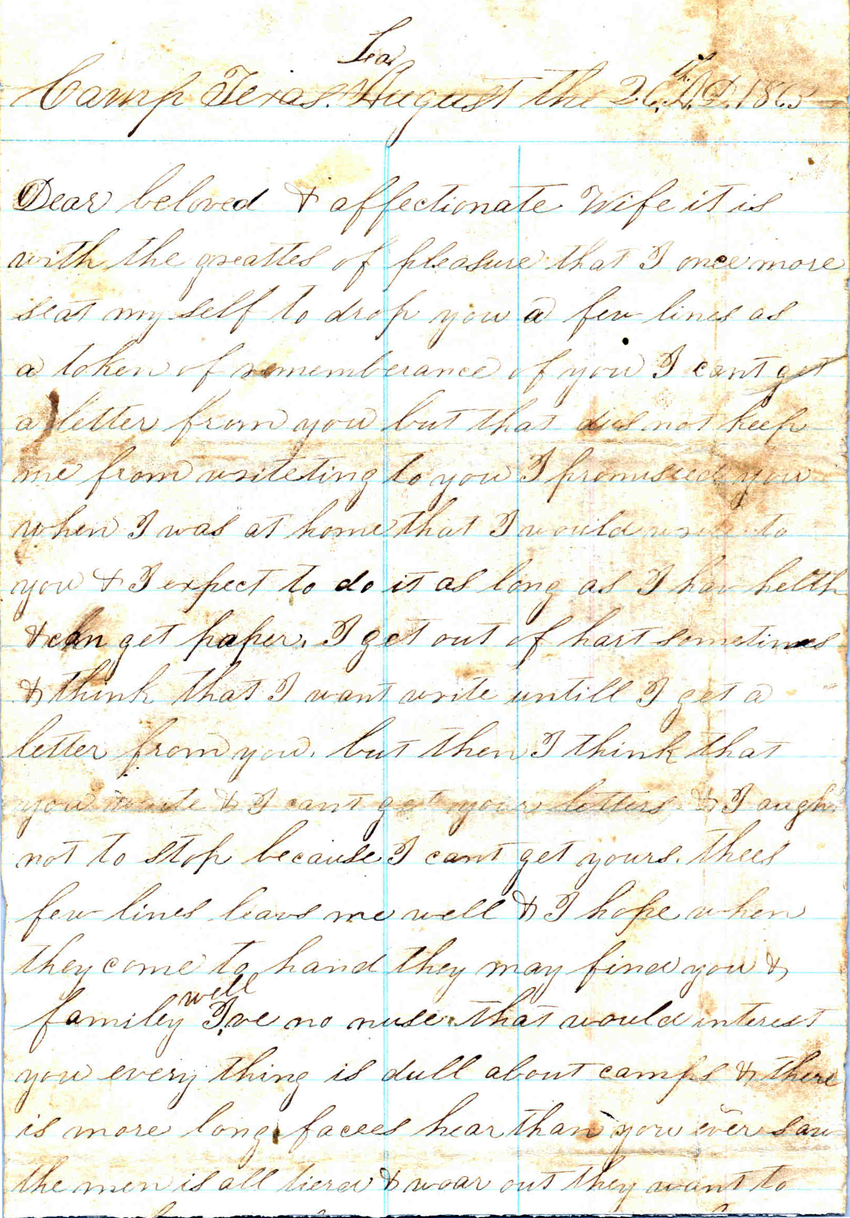 Camp Texas. August the 26th A.D. 1863
Dear beloved & affectionate Wife it is
with the greattes of pleasure that I once more
seat my self to drop you a few lines as
a token of rememberance of you I cant get
a letter from you but that dus not keep
me from writeting to you I promised you
when I was at home that I would write to
you & I expect to do it as long as I hav helth
& can get paper. I get out of hart sometimes
& think that I want write untill I get a
letter from you. but then I think that
you write & I cant get your letters & I aught
not to stop because I cant get yours. thees
few lines leavs me well & I hope when
they come to hand they may find you &
family well I,ve no nuse that would interest
you every thing is dull about camps & there
is more long facees hear than you ever saw
the men is all tierd & woar out they want to